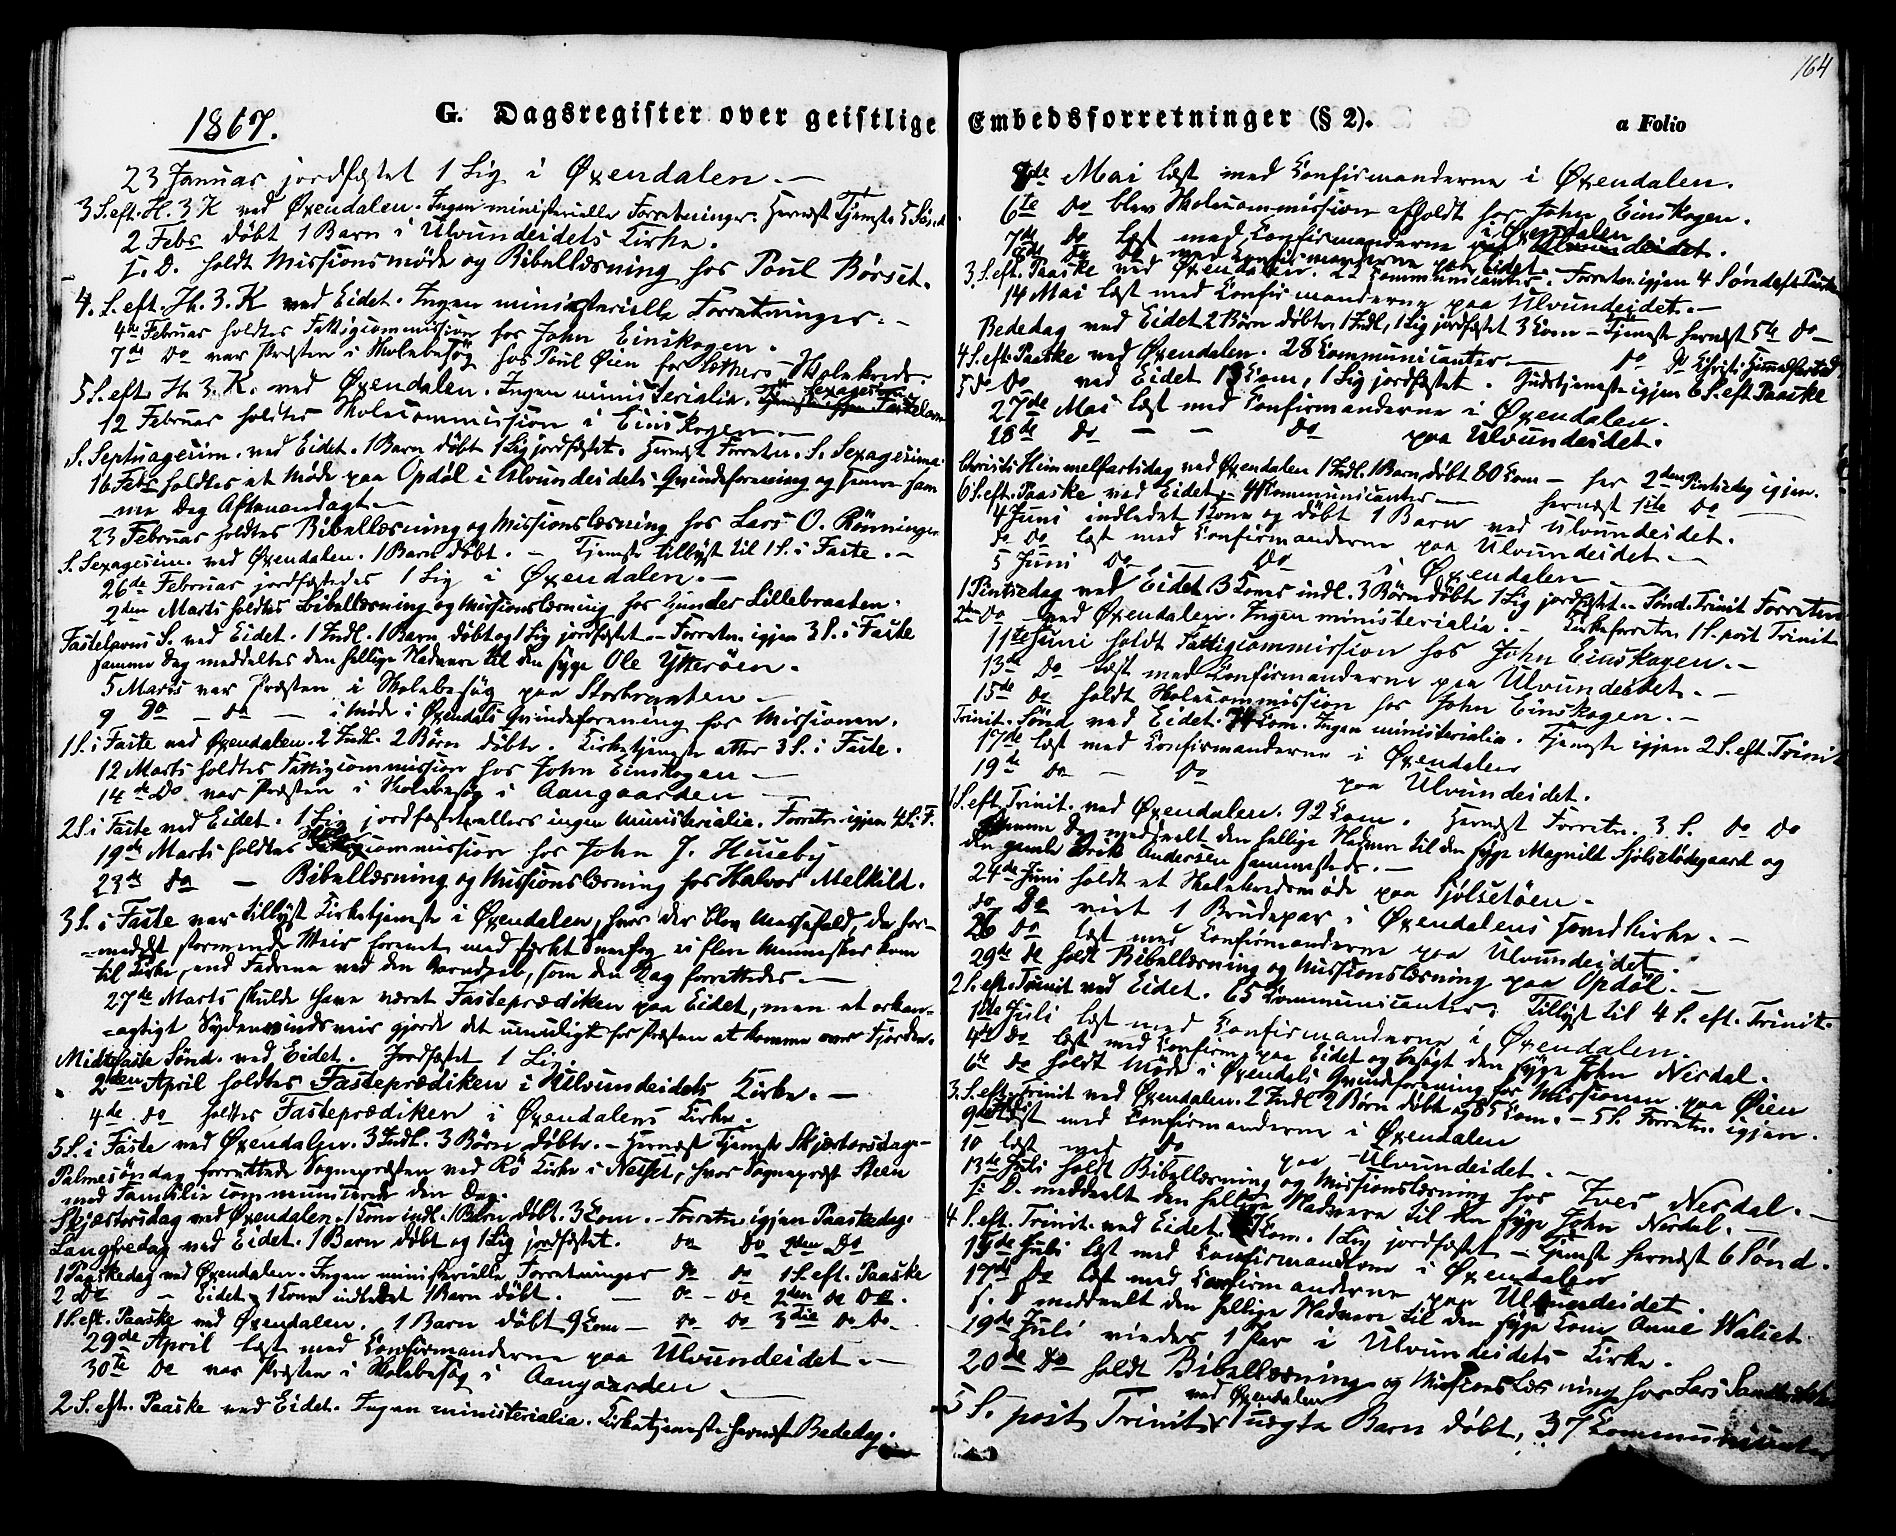 164
1867.
G. Dagsregister over geistlige Embedsforretninger (§ 2).
a Folio
23 Januar jordfæstet 1 Lig i Øxendalen. —
3 S. eft. H. 3 K ved Øxendalen. Ingen ministerielle Forretninger. Hernæst Tjeneste 5 Sønd
2 Febr døbt 1 Barn i Ulvundeidets Kirke.
S. D. holdt Missionsmøde og Bibellæsning hos Poul Børset.
4. S. eft. H. 3. K ved Eidet. Ingen ministerielle Forretninger. —
4de Februar holdtes Fattigcommission hos John Einskogen.
7de Do var Præsten i Skolebesøg hos Poul Øien for Skolekreds.
5 S. eft. H. 3. K. ved Øxendalen. Ingen ministerialia. Sexagesima
12 Februar holdtes Skolecommission i Einskogen. —
S. Septuagesim. ved Eidet. 1 Barn døbt 1 Lig jordfæstet. Hernæst Forretn. S. Sexagesima.
16 Febr holdtes et Møde paa Opdøl i Ulvundeidets Qvindeforening og senere sam
me Dag Aftonandagt. —
23 Februar holdtes Bibellæsning og Missionslæsning hos Lars O. Rønningen
S. Sexagesim. ved Øxendalen. 1 Barn døbt. — Tjeneste tillyst til 1 S. i Faste. —
26de Februar jordfæstedes 1 Lig i Øxendalen. —
2den Marts holdtes Bibellæsning og Missionslæsning hos Gunder Lillebraaten.
Fastelavns S. ved Eidet. 1 Indl. 1 Barn døbt og 1 Lig jordfæstet. — Forretn. igjen 3 S. i Faste
samme Dag meddeltes den hellige Nadvere til den syge Ole Ytterøen.
5 Marts var Præsten i Skolebesøg paa Storbraaten —
9 Do — do — i Møde i Øxendals Qvindeforening for Missionen.
1 S. i Faste ved Øxendalen. 2 Indl. 2 Børn døbte. Kirketjeneste atter 3 S. i Faste.
12 Marts holdtes Fattigcommission hos John Einskogen —
14de Do var Præsten i Skolebesøg i Aangaarden —
2 S. i Faste ved Eidet. 1 Lig jordfæstet, ellers ingen ministerialia. Forretn. igjen 4 S. i F.
19de Marts holdtes Skolecommission hos John J. Huseby
23de do — Bibellæsning og Missionslæsning hos Halvor Melkild.
3 S. i Faste var tillyst Kirketjeneste i Øxendalen, hvor der blev Messefald, da for-
=medelst stormende Veir forenet med stærkt Snefog ei flere Mennesker kom
til Kirke, end Fadderne ved den Barnedaab, som den Dag forrettedes. —
27de Marts skulde have været Fasteprædiken paa Eidet, men et orkan-
=agtigt Sydenvindsveir gjorde det umuligt for Præsten at komme over Fjorden.
Midfaste Sønd. ved Eidet. Jordfæstet 1 Lig.
2den April holdtes Fasteprædiken i Ulvundeidets Kirke. —
4de do holdtes Fasteprædiken i Øxendalens Kirke.
5 S. i Faste ved Øxendalen. 3 Indl. 3 Børn døbte. — Hernæst Tjeneste Skjærtorsdag. —
Palmesøndag forrettede Sognepræsten ved Rø Kirke i Nesset, hvor Sognepræst Steen
med Familie communicerede den Dag.
Skjærtorsdag ved Øxendalen. 1 Kone indl. 1 Barn døbt. 3 Com. — Forretn. igjen Paaskedag.
Langfredag ved Eidet. 1 Barn døbt og 1 Lig jordfæstet. do do 2den Do
1 Paaskedag ved Øxendalen. Ingen ministerielle Forretninger do do 1 S. eft. Paaske
2 Do — Eidet 1 Kone indledet 1 Barn døbt. — do — do 2den do Do.
1 S. eft. Paaske ved Øxendalen. 1 Barn døbt 9 Com — do do 3die do Do.
29de April læst med Confirmanderne paa Ulvundeidet. —
30te Do var Præsten i Skolebesøg i Aangaarden —
2 S. eft. Paaske ved Eidet. Ingen ministerialia. Kirketjeneste hernæst Bededag.
Mai læst med Confirmanderne i Øxendalen.
6te Do blev Skolecommission afholdt hos John Einskogen.
7de Do læst med Confirmanderne i Øxendalen
8de Do Do med Confirmanderne paa Eidet.
3. S. eft. Paaske ved Øxendalen. 22 Communicanter. Forretn. igjen 4 Sønd. eft. Paaske
14 Mai læst med Confirmanderne paa Ulvundeidet. —
Bededag ved Eidet 2 Børn døbte, 1 Indl, 1 Lig jordfæstet 3 Com — Tjeneste hernæst 5te Do —
4 S. eft. Paaske ved Øxendalen. 28 Communicanter — do Christi Himmelfartsd
5 do Do ved Eidet 13 Com, 1 Lig jordfæstet. Gudstjeneste igjen 6 S. eft Paaske
27de Mai læst med Confirmanderne i Øxendalen.
28de do — — do paa Ulvundeidet.
Christi Himmelfartsdag ved Øxendalen 1 Indl. 1 Barn døbt 80 Com — her 2den Pintsedag igjen.
6 S. eft. Paaske ved Eidet — Communicanter — hernæst 1ste Do
4 Juni indledet 1 Kone og døbt 1 Barn ved Ulvundeidet.
do Do læst med Confirmanderne paa Ulvundeidet. —
5 Juni Do — Do i Øxendalen —
1 Pintsedag ved Eidet. 3 Koner indl. 3 Børn døbte 1 Lig jordfæstet. Sønd. Trinit Forretn
2den Do ved Øxendalen. Ingen ministerialia. — Kirkeforretn 1 S. post Trinit
11te Juni holdt Fattigcommission hos John Einskogen. —
13de Do læst med Confirmanderne paa Ulvundeidet. —
15de do holdt Skolecommission hos John Einskogen. —
Trinit. Sønd ved Eidet. Com. Ingen ministerialia. Tjeneste igjen 2 S. eft. Trinit
17de læst med Confirmanderne i Øxendalen
19de do — do paa Ulvundeidet.
1 S. eft. Trinit. ved Øxendalen. 92 Com. Hernæst Forretn. 3 S. do do
samme Dag meddeelt den hellige Nadvere til den syge Magnild Sjølsetødegaard og
den gamle Erik Andersen sammesteds. —
24de Juni holdt et Skolekredsmøde paa Sjølsetøen.
do Do viet 1 Brudepar i Øxendalens Hovedkirke. —
26 do læst med Confirmanderne paa Ulvundeidet.
29de do holdt Bibellæsning og Missionslæsning paa Opdøl. —
2 S. eft. Trinit ved Eidet. 65 Communicanter. Tillyst til 4 S. eft. Trinit.
1de Juli læst med Confirmanderne i Øxendalen.
4de do læst med Confirm. paa Eidet og besøgt den syge John Nerdal.
6te do holdt Møde i Øxendals Qvindeforening for Missionen paa Øien
3. S. eft. Trinit ved Øxendalen. 2 Indl 2 Børn døbt og 85 Com. — 5 S. Forretn. igjen.
9de læst med Confirmanderne i Øxendalen
10 læst med do paa Ulvundeidet. —
13de Juli holdt Bibellæsning og Missionslæsning hos Iver Nerdal. —
S. D. meddeelt den hellige Nadvere til den syge John Nerdal. —
4 S. eft. Trinit. ved Eidet. Com. 1 Lig jordfæstet — Tjeneste hernæst 6 Sønd.
15de Juli læst med Confirmanderne i Øxendalen
17de do læst med Confirmanderne paa Ulvundeidet.
S. D meddeelt den hellige Nadvere til den syge Kone Anne Walset.
19de Juli viedes 1 Par i Ulvundeidets Kirke.
20de Do holdt Bibellæsning og Missionslæsning hos Lars
ved Øxendalen
5 S. post Trinit 1 uægte Barn døbt, 37 Communicanter